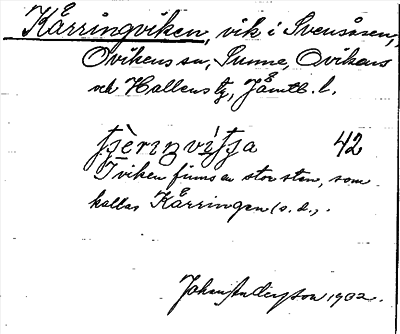 Kärringviken, vik i Svensåsen,
Ovikens sn, Sunne, Ovikens
och Hallens tg, Jämtl. l.
42
I viken finns en stor sten, som
kallas Kärringen (s.d.).
1932.